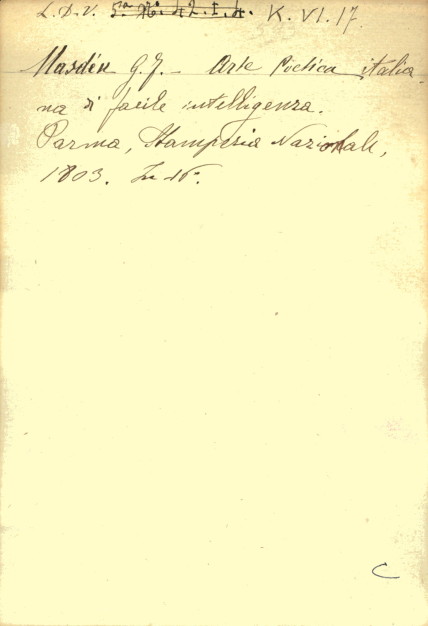 L. D. V. 5.a N.o 42. I. 4. K. VI. 17.
Masdéu G. F. - Arte Poetica italia-
na di facile intelligenza.
Parma, Stamperia Nazionale,
1803. In 16.o
C